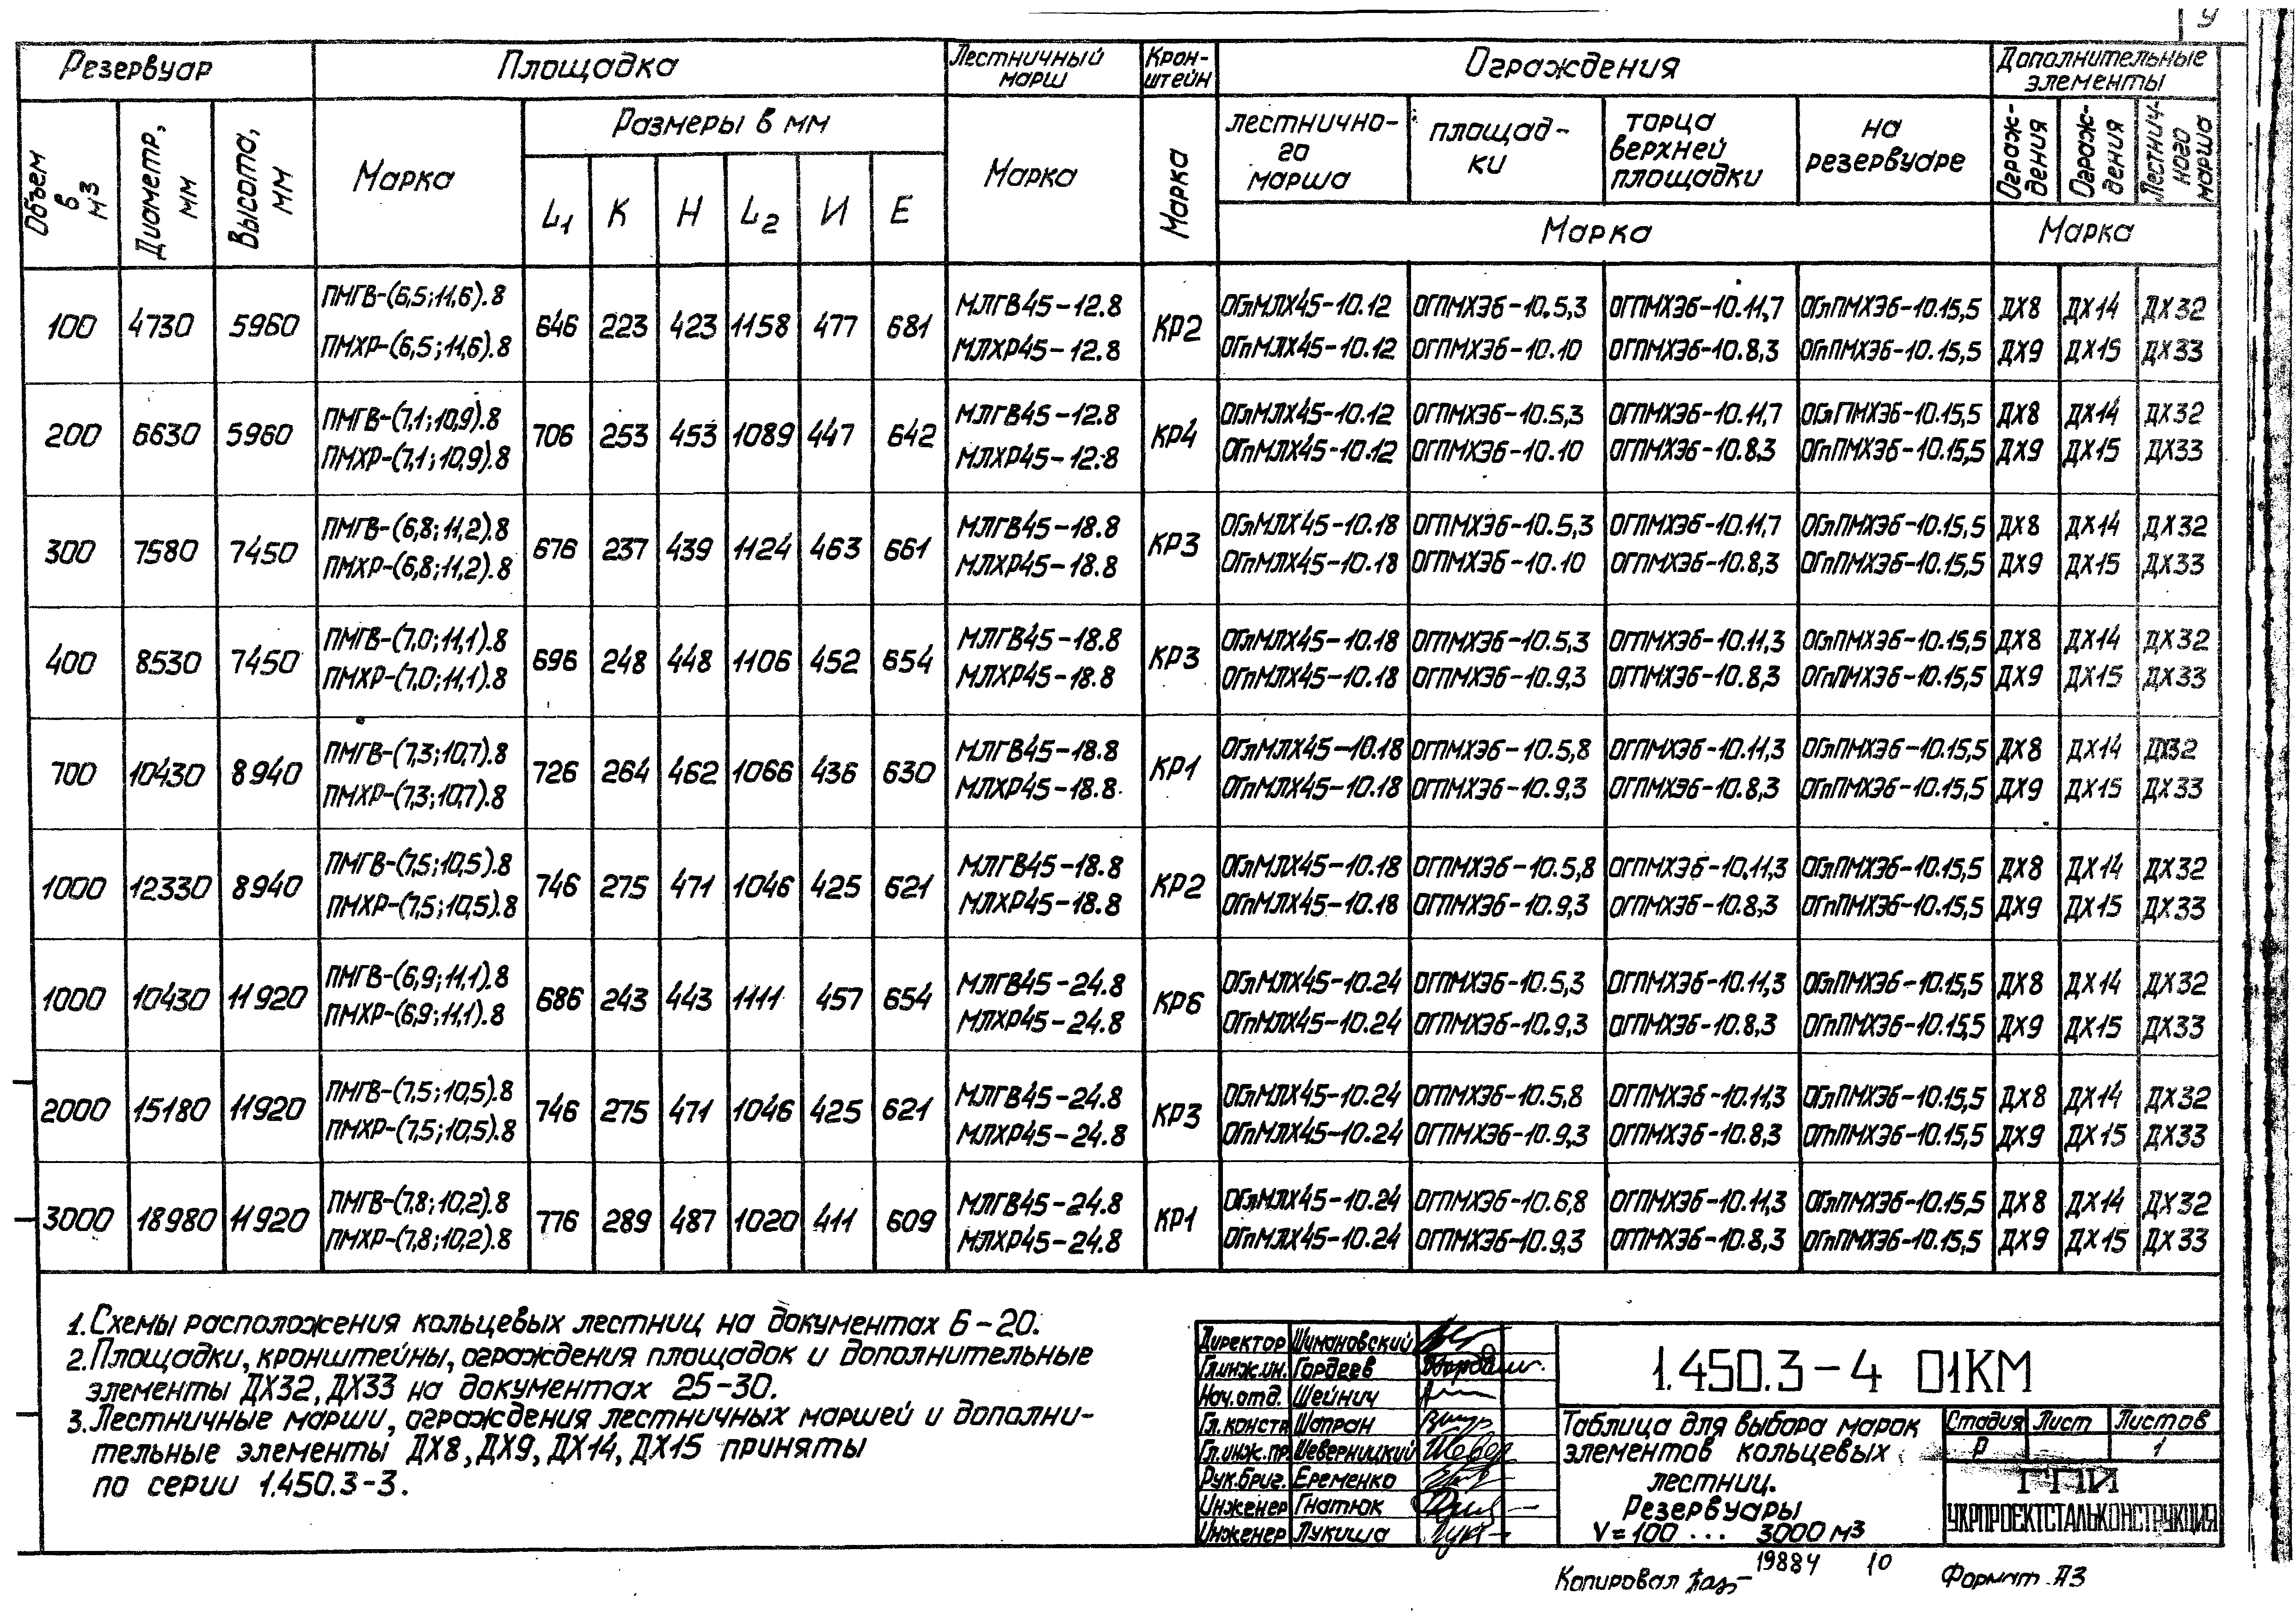 Резервуар Площадка Лестничный марш Крон-штейн Ограждения Дополнительные элементы
Объем в м3 Диаметр, мм Высота, мм Марка Размеры в мм Марка Марка лестнично-го марша площад-ки торца верхней площадки на резервуаре Ограж-дения Ограж-дения Лестнич-ного марша
L1 К Н L2 И Е Марка Марка
ПМГВ-(6,5;11,6).8 МЛГВ45-12.8 ОГлМЛХ45-10.12 ОГПМХЭб-10.5,3 ОГПМХЭб-10.11,7 ОГлПМХЭб-10.15,5 ДХ8 ДХ14 ДХ32
100 4730 5960 646 223 423 1158 477 681 КР2
ПМХР-(6,5;11,6).8 МЛХР45-12.8 ОГпМЛХ45-10.12 ОГПМХЭб-10.10 ОГПМХЭб-10.8,3 ОГпПМХЭб-10.15,5 ДХ9 ДХ15 ДХ33
ПМГВ-(7,1;10,9).8 МЛГВ45-12.8 ОГлМЛХ45-10.12 ОГПМХЭб-10.5,3 ОГПМХЭб-10.11,7 ОГлПМХЭб-10.15,5 ДХ8 ДХ14 ДХ32
200 6630 5960 706 253 453 1089 447 642 КР4
ПМХР-(7,1;10,9).8 МЛХР45-12.8 ОГпМЛХ45-10.12 ОГПМХЭб-10.10 ОГПМХЭб-10.8,3 ОГпПМХЭб-10.15,5 ДХ9 ДХ15 ДХ33
ПМГВ-(6,8;11,2).8 МЛГВ45-18.8 ОГлМЛХ45-10.18 ОГПМХЭб-10.5,3 ОГПМХЭб-10.11,7 ОГлПМХЭб-10.15,5 ДХ8 ДХ14 ДХ32
300 7580 7450 676 237 439 1124 463 661 КР3
ПМХР-(6,8;11,2).8 МЛХР45-18.8 ОГпМЛХ45-10.18 ОГПМХЭб-10.10 ОГПМХЭб-10.8,3 ОГпПМХЭб-10.15,5 ДХ9 ДХ15 ДХ33
ПМГВ-(7,0;11,1).8 МЛГВ45-18.8 ОГлМЛХ45-10.18 ОГПМХЭб-10.5,3 ОГПМХЭб-10.11,3 ОГлПМХЭб-10.15,5 ДХ8 ДХ14 ДХ32
400 8530 7450 696 248 448 1106 452 654 КР3
ПМХР-(7,0;11,1).8 МЛХР45-18.8 ОГпМЛХ45-10.18 ОГПМХЭб-10.9,3 ОГПМХЭб-10.8,3 ОГпПМХЭб-10.15,5 ДХ9 ДХ15 ДХ33
ПМГВ-(7,3;10,7).8 МЛГВ45-18.8 ОГлМЛХ45-10.18 ОГПМХЭб-10.5,8 ОГПМХЭб-10.11,3 ОГлПМХЭб-10.15,5 ДХ8 ДХ14 ДХ32
700 10430 8940 726 264 462 1066 436 630 КР1
ПМХР-(7,3;10,7).8 МЛХР45-18.8 ОГпМЛХ45-10.18 ОГПМХЭб-10.9,3 ОГПМХЭб-10.8,3 ОГпПМХЭб-10.15,5 ДХ9 ДХ15 ДХ33
ПМГВ-(7,5;10,5).8 МЛГВ45-18.8 ОГлМЛХ45-10.18 ОГПМХЭб-10.5,8 ОГПМХЭб-10.11,3 ОГлПМХЭб-10.15,5 ДХ8 ДХ14 ДХ32
1000 12330 8940 746 275 471 1046 425 621 КР2
ПМХР-(7,5;10,5).8 МЛХР45-18.8 ОГпМЛХ45-10.18 ОГПМХЭб-10.9,3 ОГПМХЭб-10.8,3 ОГпПМХЭб-10.15,5 ДХ9 ДХ15 ДХ33
ПМГВ-(6,9;11,1).8 МЛГВ45-24.8 ОГлМЛХ45-10.24 ОГПМХЭб-10.5,3 ОГПМХЭб-10.11,3 ОГлПМХЭб-10.15,5 ДХ8 ДХ14 ДХ32
1000 10430 11920 686 243 443 1111 457 654 КР6
ПМХР-(6,9;11,1).8 МЛХР45-24.8 ОГпМЛХ45-10.24 ОГПМХЭб-10.9,3 ОГПМХЭб-10.8,3 ОГпПМХЭб-10.15,5 ДХ9 ДХ15 ДХ33
ПМГВ-(7,5;10,5).8 МЛГВ45-24.8 ОГлМЛХ45-10.24 ОГПМХЭб-10.5,8 ОГПМХЭб-10.11,3 ОГлПМХЭб-10.15,5 ДХ8 ДХ14 ДХ32
2000 15180 11920 746 275 471 1046 425 621 КР3
ПМХР-(7,5;10,5).8 МЛХР45-24.8 ОГпМЛХ45-10.24 ОГПМХЭб-10.9,3 ОГПМХЭб-10.8,3 ОГпПМХЭб-10.15,5 ДХ9 ДХ15 ДХ33
ПМГВ-(7,8;10,2).8 МЛГВ45-24.8 ОГлМЛХ45-10.24 ОГПМХЭб-10.6,8 ОГПМХЭб-10.11,3 ОГлПМХЭб-10.15,5 ДХ8 ДХ14 ДХ32
3000 18980 11920 776 289 487 1020 411 609 КР1
ПМХР-(7,8;10,2).8 МЛХР45-24.8 ОГпМЛХ45-10.24 ОГПМХЭб-10.9,3 ОГПМХЭб-10.8,3 ОГпПМХЭб-10.15,5 ДХ9 ДХ15 ДХ33
1. Схемы расположения кольцевых лестниц на документах 6-20.
2. Площадки, кронштейны, ограждения площадок и дополнительные
элементы ДХ32, ДХ33 на документах 25-30.
3. Лестничные марши, ограждения лестничных маршей и дополни-
тельные элементы ДХ8, ДХ9, ДХ14, ДХ15 приняты
по серии 1.450.3-3.
Директор Шимановский
Гл.инж.ин. Гордеев
Нач.отд. Шейнич
Гл.констр Шапран
Гл.инж.пр. Шеверницкий
Рук.бриг. Еременко
Инженер Гнатюк
Инженер Лукиша
1.450.3-4 01КМ
Таблица для выбора марок
элементов кольцевых
лестниц.
Резервуары
V=100 ... 3000 м3
Стадия Лист Листов
Р 1
ГПИ
УКРПРОЕКТСТАЛЬКОНСТРУКЦИЯ
19884 10
Копировал Формат А3